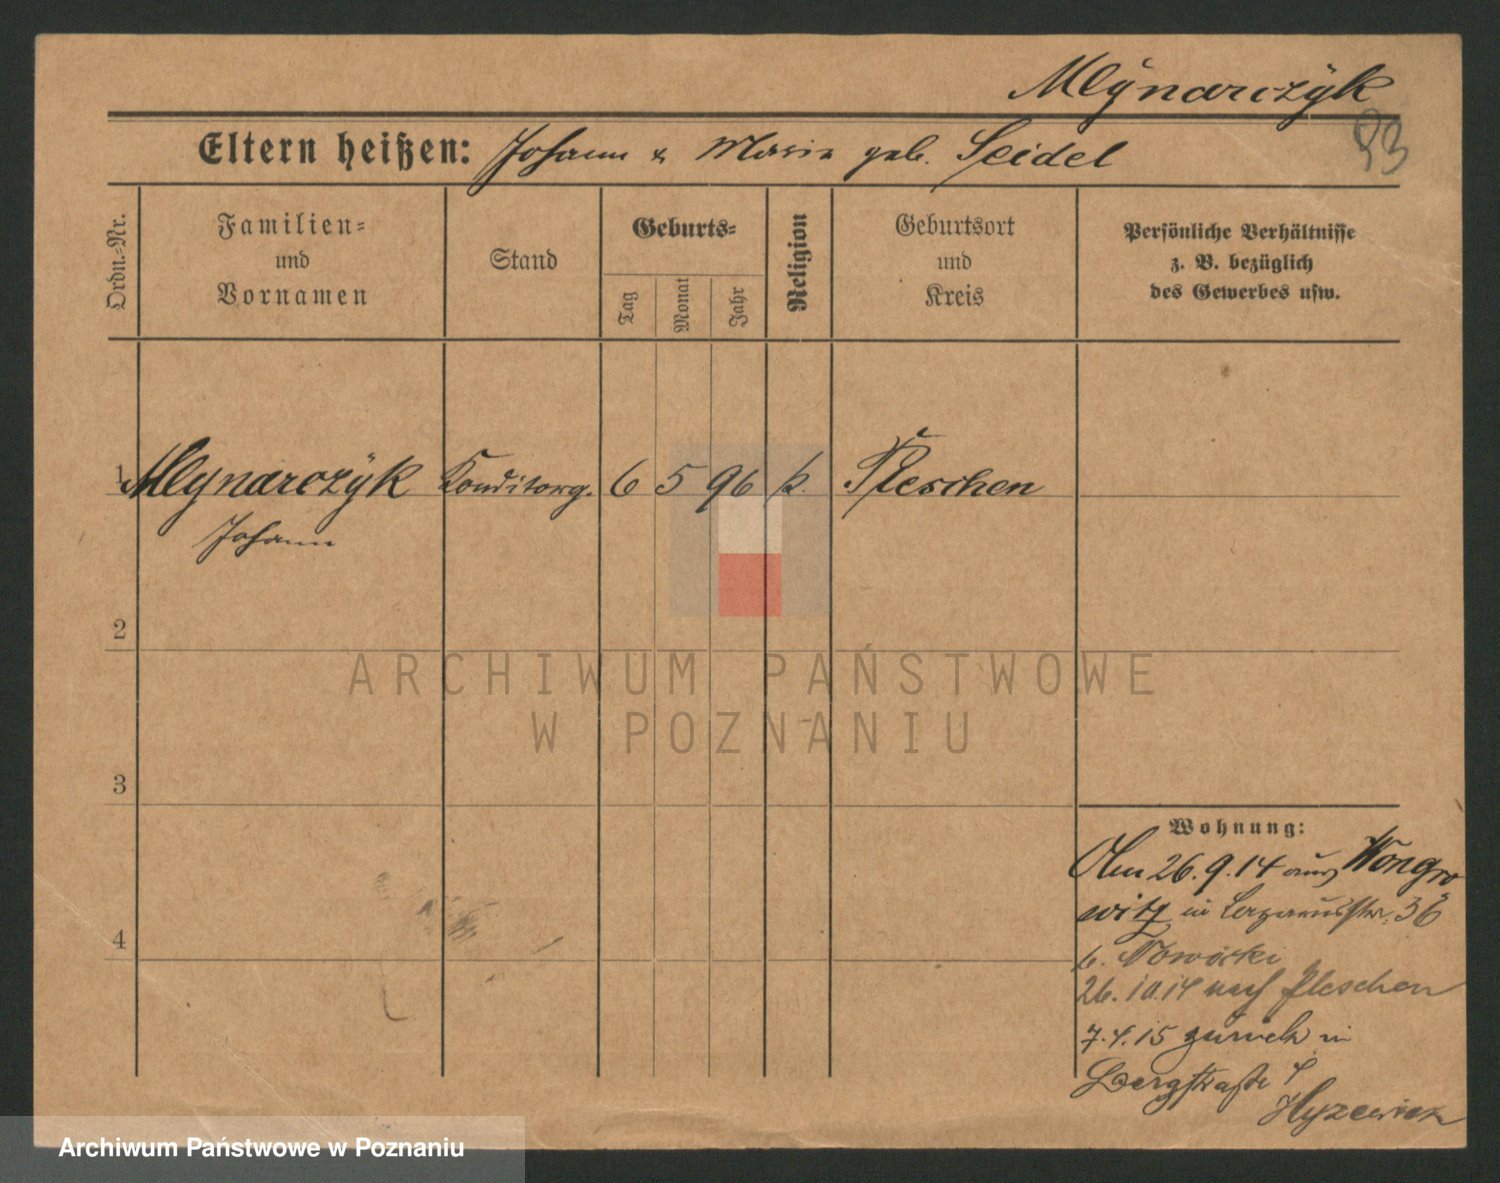 Mlynarczyk
93
Eltern heißen: Johann & Marie geb. Seidel
Ordn.-Nr.
Familien-
und
Vornamen
Stand
Geburts-
Tag
Monat
Jahr
Religion
Geburtsort
und
Kreis
Persönliche Verhältnisse
z. B. bezüglich
des Gewerbes usw.
1 Mlynarczyk Konditorg. 6 5 96 k. Pleschen
Johann
2
3
4
Wohnung:
Am 26.9.14 aus Wongro
witz in Lazarusstr. 36
b. Nowicki
26.10.14 nach Pleschen
7.4.15 zurück in
Bergstraße 4
ARCHIWUM PAŃSTWOWE
W POZNANIU
Archiwum Państwowe w Poznaniu